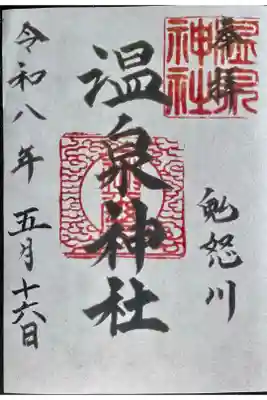 奉拝
温泉神社
鬼怒川
温泉神社
令和八年 五月十六日